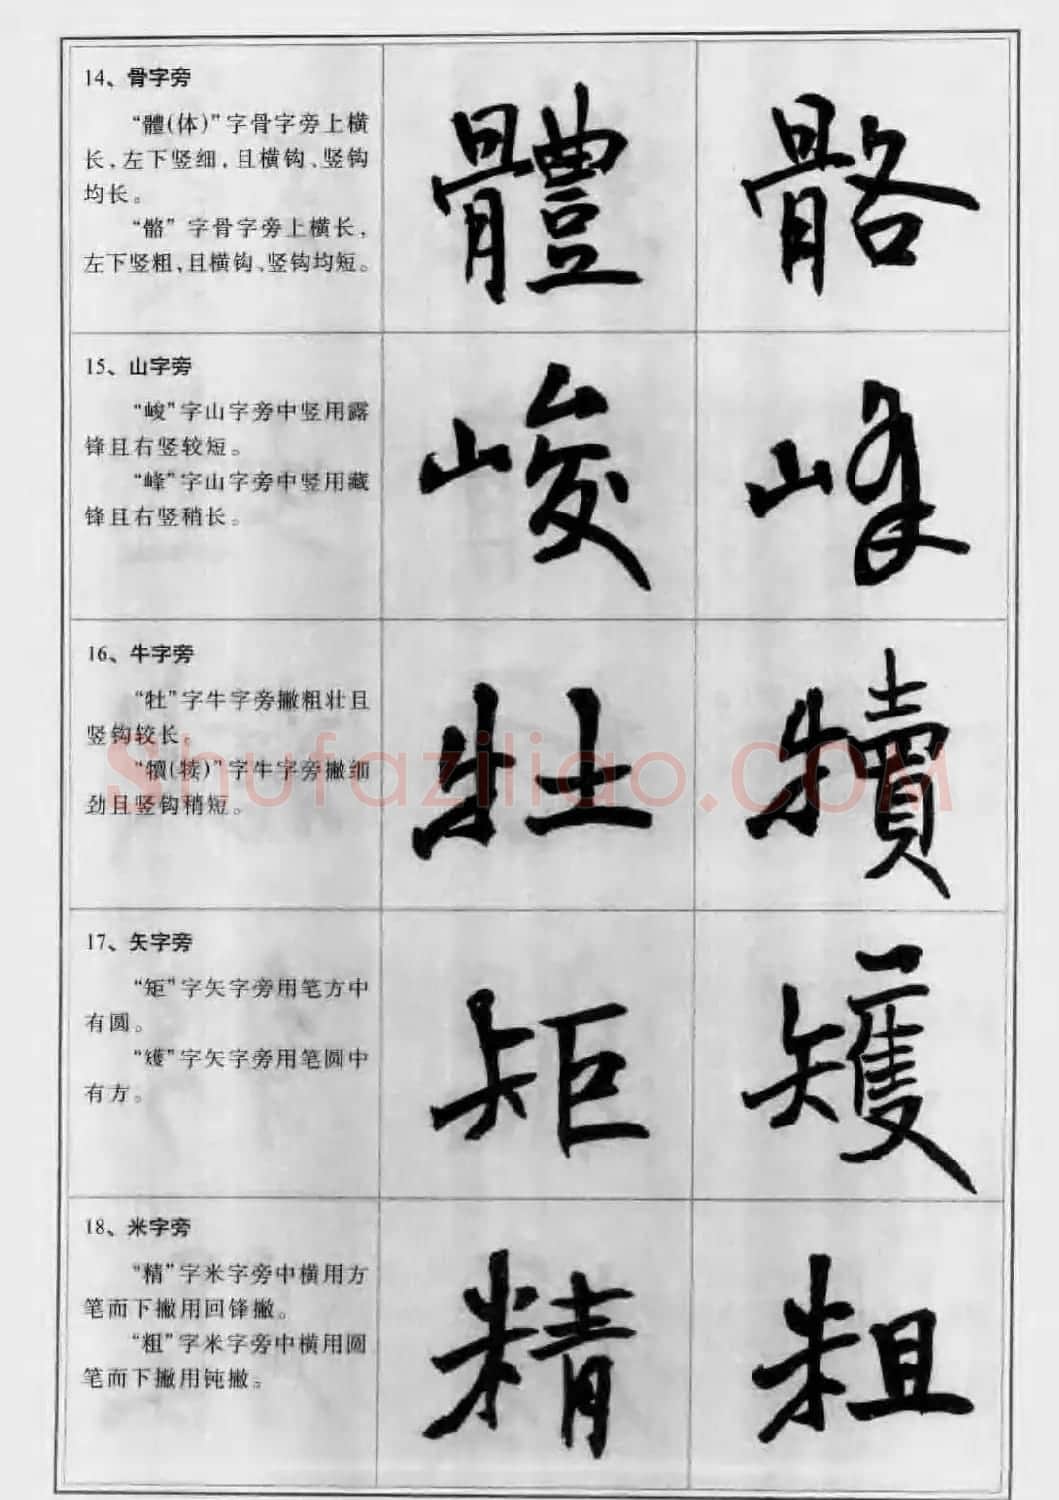 14、骨字旁
“體(体)”字骨字旁上横
长,左下竖细,且横钩、竖钩
均长。
“骼”字骨字旁上横长,
左下竖粗,且横钩、竖钩均短。
體 骼
15、山字旁
“峻”字山字旁中竖用露
锋且右竖较短。
“峰”字山字旁中竖用藏
锋且右竖稍长。
峻 峰
16、牛字旁
“牡”字牛字旁撇粗壮且
竖钩较长。
“犢(犊)”字牛字旁撇细
劲且竖钩稍短。
牡 犢
Shufaziliao.COM
17、矢字旁
“矩”字矢字旁用笔方中
有圆。
“矱”字矢字旁用笔圆中
有方。
矩 矱
18、米字旁
“精”字米字旁中横用方
笔而下撇用回锋撇。
“粗”字米字旁中横用圆
笔而下撇用钝撇。
精 粗